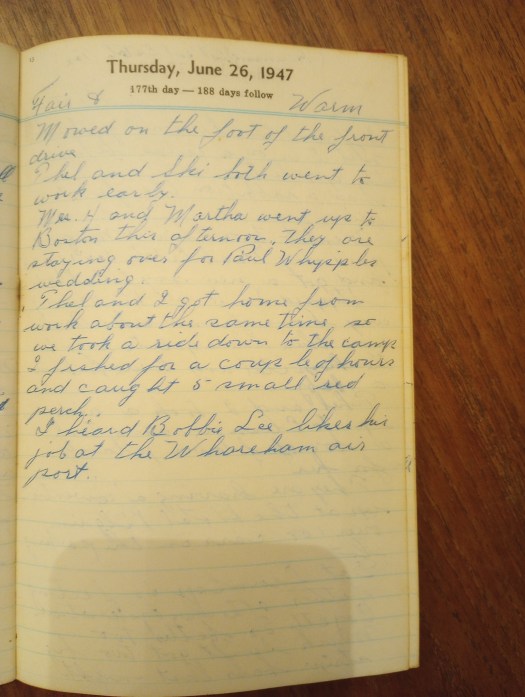 Thursday, June 26, 1947
177th day — 188 days follow
Fair & Warm
Mowed on the foot of the front
drive
Phel and Ski both went to
work early.
Mrs. H and Martha went up to
Boston this afternoon. They are
staying over for Paul Whipples
wedding.
Phel and I got home from
work about the same time so
we took a ride down to the camp
I fished for a couple of hours
and caught 5 small red
perch.
I heard Bobbie Lee likes his
job at the Whareham air
port.